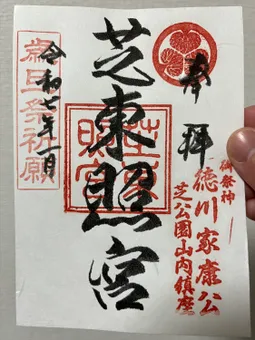 奉拝
御祭神
徳川家康公
芝公園山内鎮座
芝東照宮
芝東照宮
歳旦祭祈願
令和七年一月